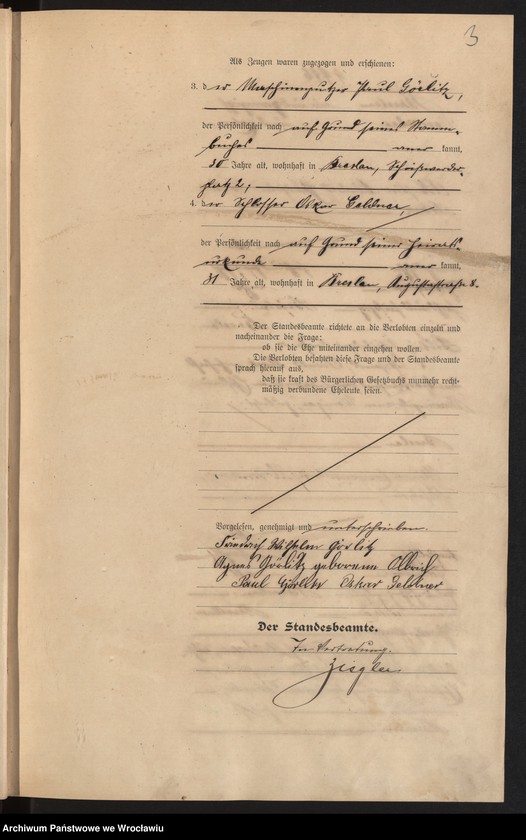 3
Als Zeugen waren zugezogen und erschienen:
3. der Maschinenputzer Paul Görlitz,
der Persönlichkeit nach auf Grund seines Stamm-
buches anerkannt,
Jahre alt, wohnhaft in Breslau, Schießwerder-
platz 2;
4. der Schlosser Oskar
der Persönlichkeit nach auf Grund seiner Heirats-
urkunde anerkannt,
31 Jahre alt, wohnhaft in Breslau, Augustastraße
Der Standesbeamte richtete an die Verlobten einzeln und
nacheinander die Frage:
ob sie die Ehe miteinander eingehen wollen.
Die Verlobten bejahten diese Frage und der Standesbeamte
sprach hierauf aus,
daß sie kraft des Bürgerlichen Gesetzbuchs nunmehr recht-
mäßig verbundene Eheleute seien.
Vorgelesen, genehmigt und unterschrieben.
Friedrich Wilhelm Görlitz
Agnes Görlitz geborene Olbrich
Paul Görlitz Oskar
Der Standesbeamte.
In Vertretung.
Ziegler
Archiwum Państwowe we Wrocławiu